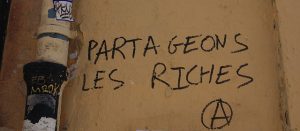 PARTAGEONS
LES RICHES